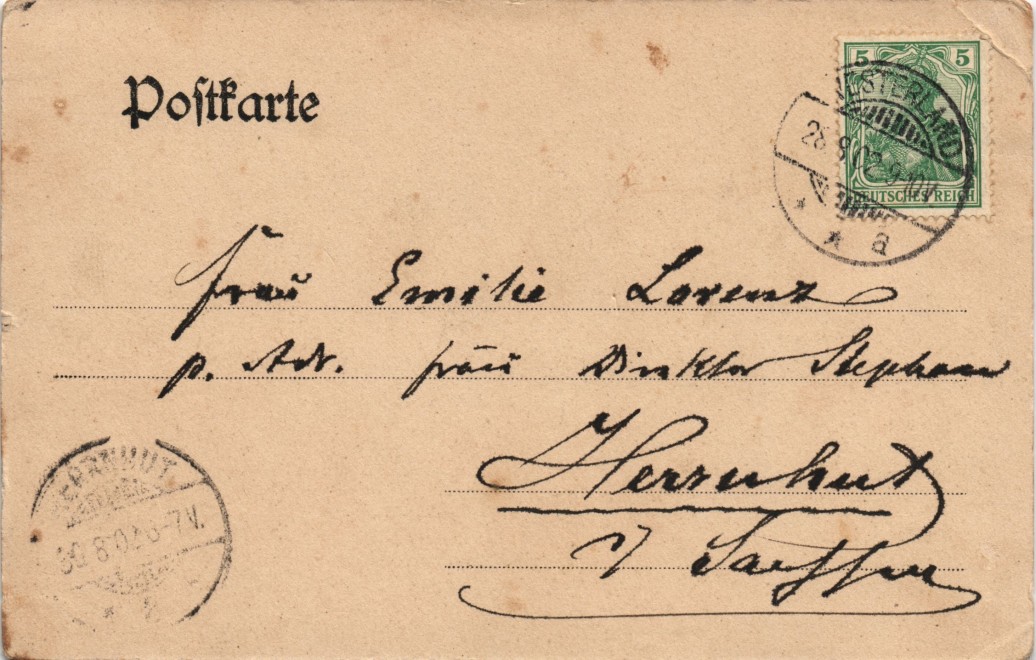 Postkarte
5 5
DEUTSCHES REICH
WESTERLAND
28.8.02. 9-10V.
* * a
Frau Emilie Lorenz
p. Adr. Frau Direktor Stephan
Herrnhut
i/ Sachsen
HERRNHUT
30.8.02.6-7V.